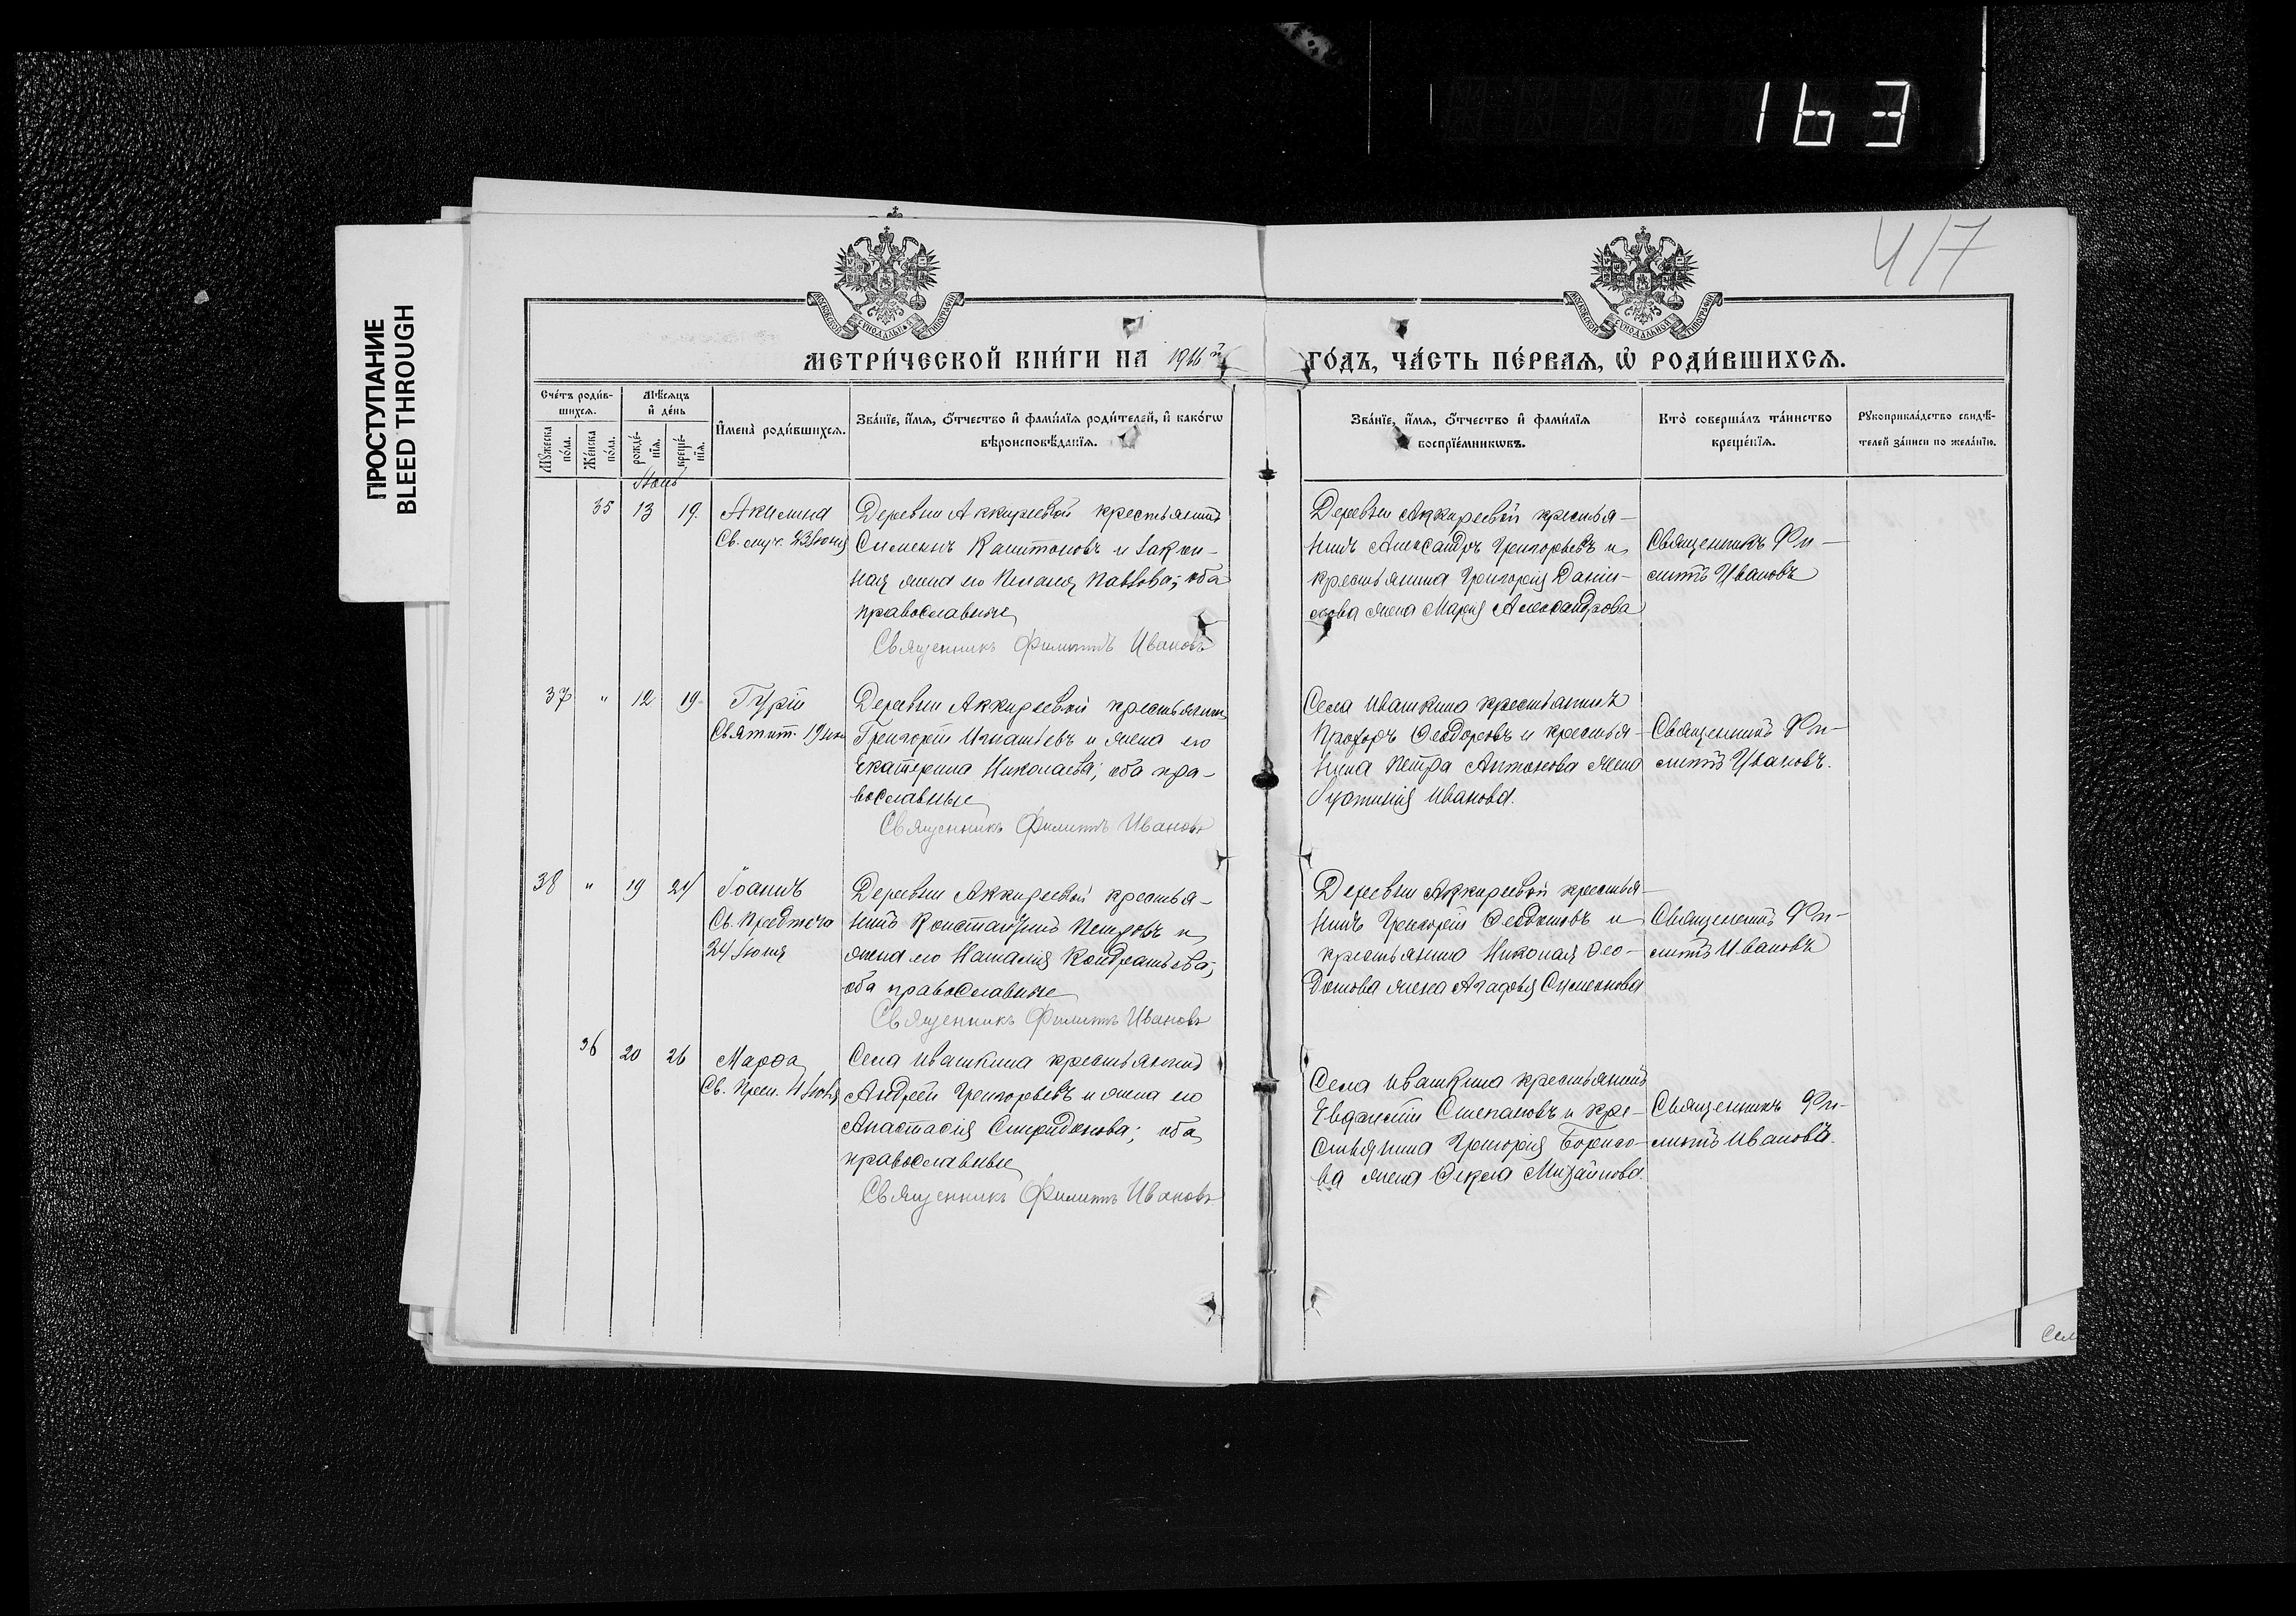 163
417
ПРОСТУПАНИЕ
BLEED THROUGH
МОСКОВСКОЙ СѴНОДАЛЬНОЙ ТИПОГРАФІИ
МОСКОВСКОЙ СѴНОДАЛЬНОЙ ТИПОГРАФІИ
МЕТРИ́ЧЕСКОЙ КНИ́ГИ НА 1916й
ГО́ДЪ, ЧА́СТЬ ПЕ́РВАЯ, Ѡ РОДИ́ВШИХСЯ.
Сче́тъ роди́в-
шихся.
Мꙋ́жеска по́ла.
Же́нска по́ла.
Мѣ́сяцъ
и де́нь
рожде́-нія.
креще́-нія.
Имена̀ роди́вшихся.
Зва́ніе, и́мя, о́тчество и фами́лія роди́телей, и како́гѡ
вѣроисповѣ́данія.
Зва́ніе, и́мя, о́тчество и фами́лія
воспріе́мникѡвъ.
Кто̀ соверша́лъ та́инство
креще́нія.
Рꙋкоприкла́дство свидѣ́-
телей за́писи по жела́нію.
Іюнь
35 13 19. Акилина
Св. муч. 13 Іюня
Деревни Аккиреевой крестьянинъ
Симеонъ Капитоновъ и закон-
ная жена его Пелагея Павлова; оба
православные
Священникъ Филиппъ Ивановъ
Деревни Аккиреевой крестья-
нинъ Александръ Григорьевъ и
крестьянина Григорія Дани-
лова жена Марія Александрова
Священникъ Фи-
липпъ Ивановъ
37 " 12 19. Гурій
Святит. 19 июн
Деревни Аккиреевой крестьянин
Григорій Игнатьевъ и жена его
Екатерина Николаева; оба пра-
вославные
Священникъ Филиппъ Ивановъ
Села Ивашкина крестьянинъ
Прохоръ Ѳеодоровъ и крестья-
нина Петра Антонова жена
Іустинія Иванова.
Священникъ Фи-
липпъ Ивановъ.
38 " 19 24 Іоаннъ
Св. Предтеча
24 Іюня
Деревни Аккиреевой крестья-
нинъ Константинъ Петровъ и
жена его Наталія Кондратьева;
оба православные
Священникъ Филиппъ Ивановъ
Деревни Аккиреевой крестья-
нинъ Григорій Ѳедотовъ и
крестьянина Николая Ѳео-
дотова жена Агафья Симеонова
Священникъ Фи-
липпъ Ивановъ
36 20 26 Марѳа
Св. Преп. 4 Іюля
Села Ивашкина крестьянинъ
Андрей Григорьевъ и жена его
Анастасія Спиридонова; оба
православные
Священникъ Филиппъ Ивановъ
Села Ивашкина крестьянинъ
Степановъ и кре-
стьянина Григорія Борисо-
ва жена Ѳекла Михайлова.
Священникъ Фи-
липпъ Ивановъ.
Сел